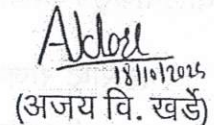 18/10/2025
(अजय वि. खर्डे)